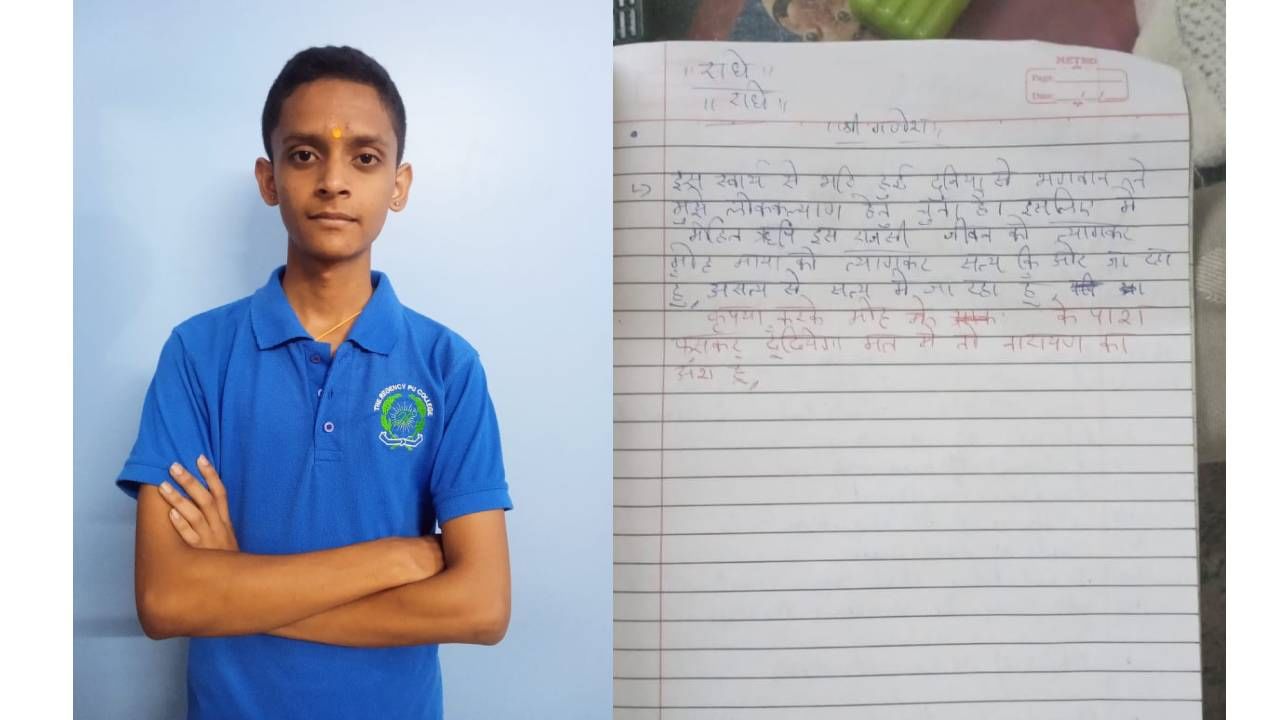 THE REGENCY PU COLLEGE
॥ राधे ॥
॥ राधे ॥
NETRO
Page:
Date: / /
॥ श्री गणेश ॥
इस स्वार्थ से भरि हुई दुनिया से भगवान ने
मुझे लोककल्याण हेतु चुना है। इसलिए मैं
मोहित ऋषि इस राजसी जीवन को त्यागकर
मोह माया को त्यागकर सत्य कि ओर जा रहा
हू, असत्य से सत्य मे जा रहा हू
कृपया करके मोह के के पाश
फसकर ढूंढियेगा मत मे तो नारायण का
अंश हू,